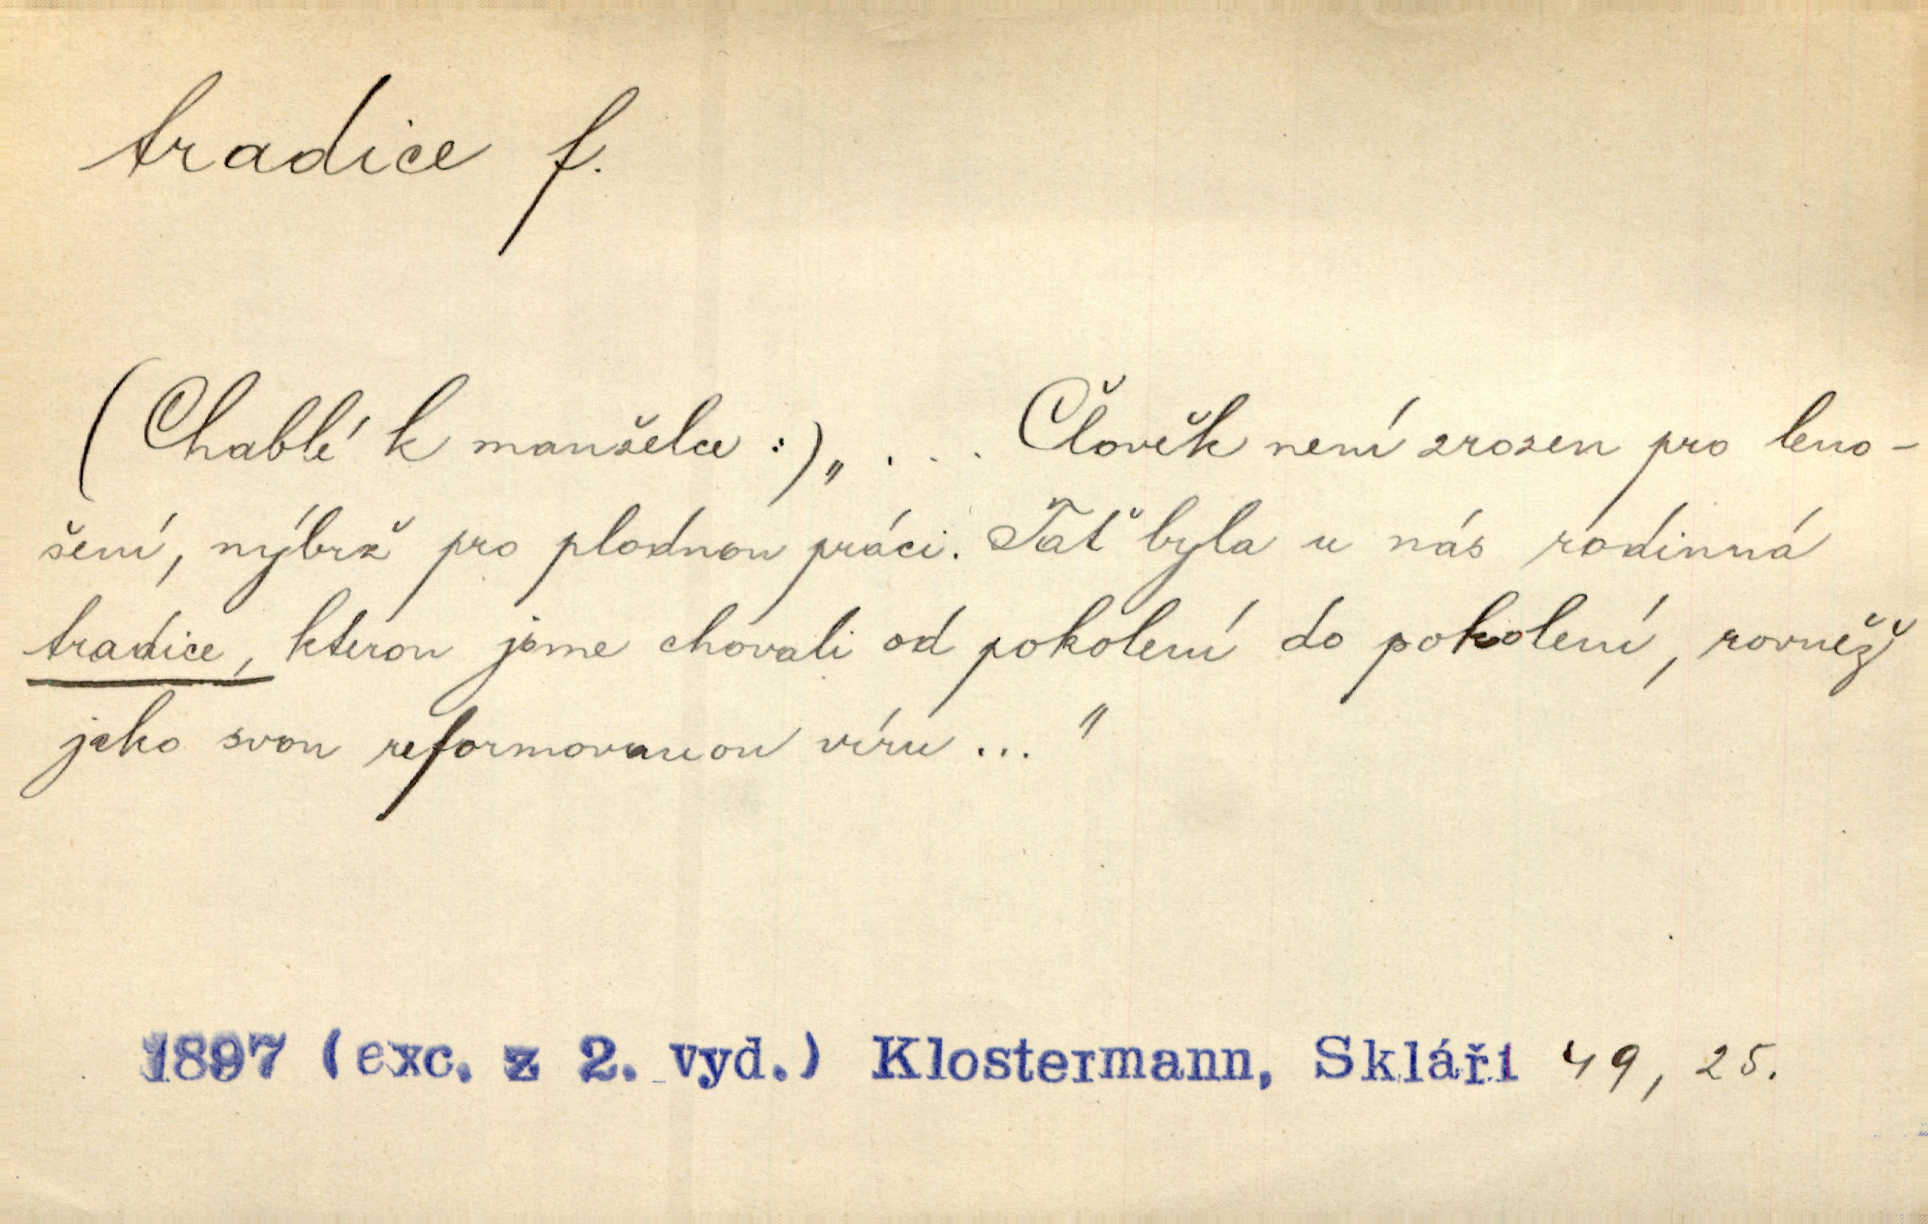 tradice f.
(Chablé k manželce:) „ . . . Člověk není zrozen pro leno-
šení, nýbrž pro plodnou práci. Tať byla u nás rodinná
tradice, kterou jsme chovali od pokolení do pokolení, rovněž
jako svou reformovanou víru ... "
1897 (exc. z 2. vyd.) Klostermann, Skláři 49, 25.